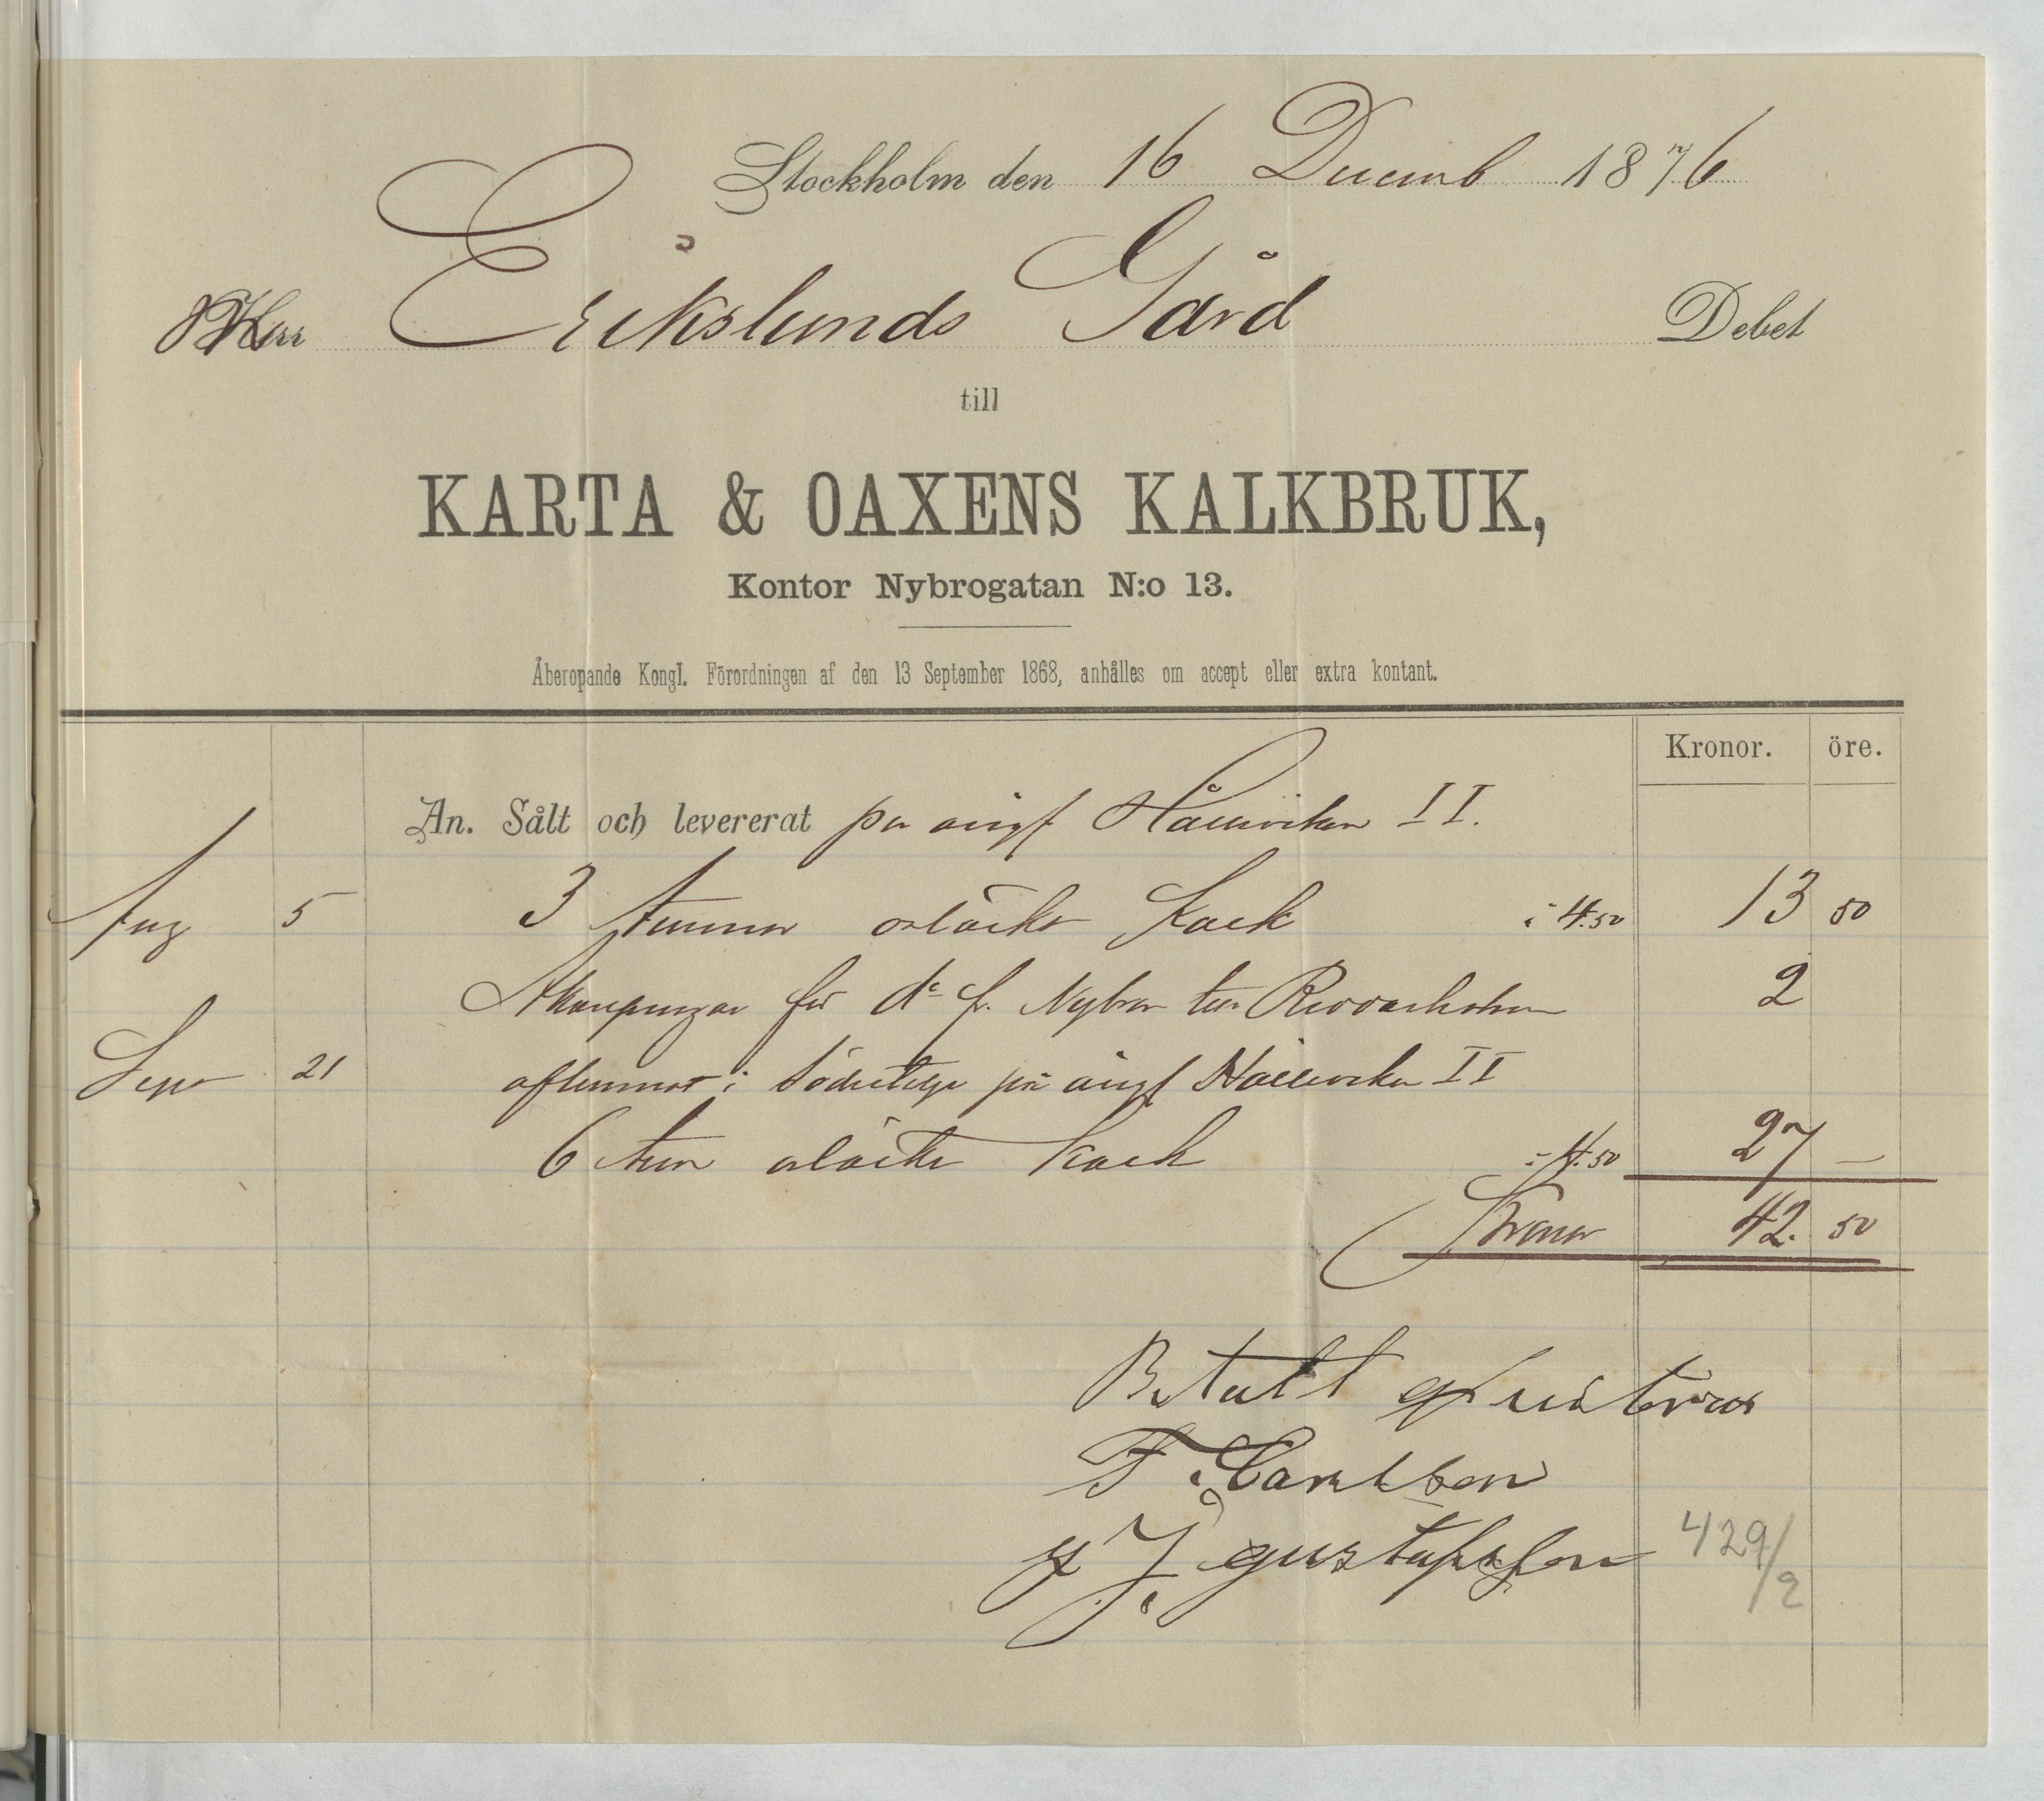 Stockholm den 16 Decemb 1876
Herr Erikslunds Gård Debet
till
KARTA & OAXENS KALKBRUK,
Kontor Nybrogatan N:o 13.
Åberopande Kongl. Förordningen af den 13 September 1868, anhålles om accept eller extra kontant.
Kronor. öre.
An. Sålt och levererat per ångf Hållsviken II.
Aug 5 3 tunnor osläckt Kalk à 4.50 13 50
Åkarpengar för do fr. Nybron till Riddarholmen 2
Sept 21 aflemnat i Södertelje på ångf Hållsviken II
6 tun osläckt Kalk à 4.50 27 —
Kronor 42. 50
Betalt qvitteras
F. Carlsson
g J. gustafsson
429/2